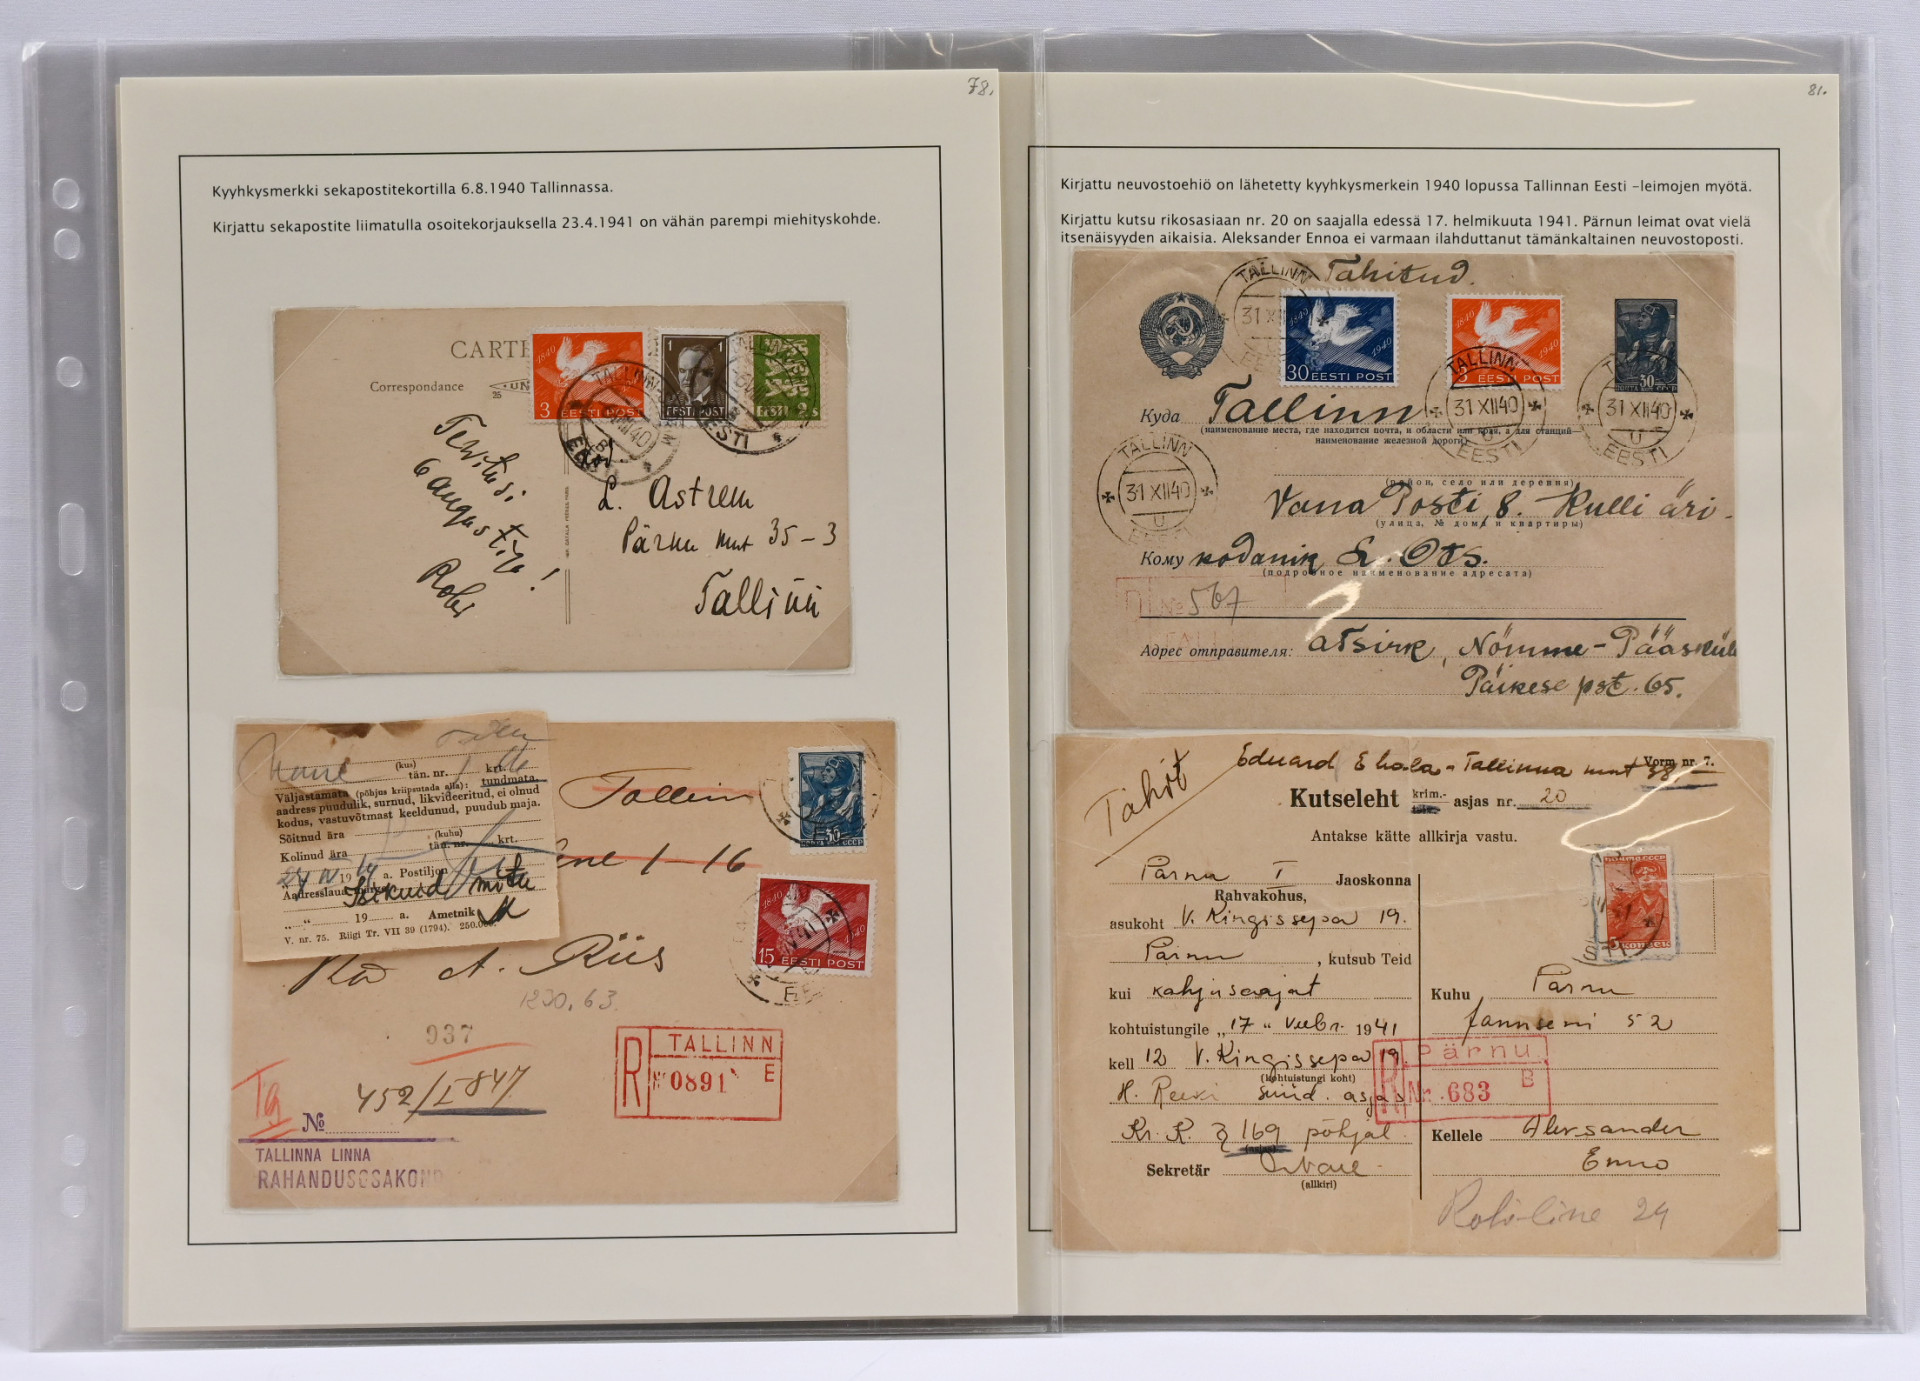 78.
Kyyhkysmerkki sekapostitekortilla 6.8.1940 Tallinnassa.
Kirjattu sekapostite liimatulla osoitekorjauksella 23.4.1941 on vähän parempi miehityskohde.
CARTE
Correspondance
25
UN
1840
3 EESTI POST
1 1
EESTI POST
EESTI 2 s
TALLINN
EESTI
Tervitusi
6 augustist!
L. Astrem
Pärnu mnt 35-3
Tallinn
(kus)
tän. nr. krt.
Väljastamata (põhjus kriipsutada alla): tundmata,
aadress puudulik, surnud, likvideeritud, ei olnud
kodus, vastuvõtmast keeldunud, puudub maja.
Sõitnud ära
(kuhu)
Kolinud ära tän. nr. krt.
24 IV 19 a. Postiljon
Aadresslaua
" 19 a. Ametnik
V. nr. 75. Riigi Tr. VII 39 (1794). 250.000.
Tallinn
1-16
30
ПОЧТА СССР
1840 1940
15 EESTI POST
A. Riis
1230.63.
937
452/I 847
Tg
№
TALLINNA LINNA
RAHANDUSOSAKOND
R TALLINN
№ 0891 E
81.
Kirjattu neuvostoehiö on lähetetty kyyhkysmerkein 1940 lopussa Tallinnan Eesti –leimojen myötä.
Kirjattu kutsu rikosasiaan nr. 20 on saajalla edessä 17. helmikuuta 1941. Pärnun leimat ovat vielä
itsenäisyyden aikaisia. Aleksander Ennoa ei varmaan ilahduttanut tämänkaltainen neuvostoposti.
Tähitud.
TALLINN
31 XII
1840 1940
30 EESTI POST
1840 1940
5 EESTI POST
30
ПОЧТА СССР
TALLINN
31 XII 40
U
EESTI
31 XII 40
U
EESTI
TALLINN
31 XII 40
U
EESTI
Куда Tallinn
(наименование места, где находится почта, и области или края, а для станций—
наименование железной дороги)
(район, село или деревня)
Vana Posti 8. Kulli äri.
(улица, № дома и квартиры)
Кому kodanik L. Ots.
(подробное наименование адресата)
№ 567
Адрес отправителя: Atsirk, Nõmme-Pääsküla
Päikese pst. 65.
Tähit
Eduard Ehala - Tallinna mnt 38
Vorm nr. 7.
Kutseleht krim.- asjas nr. 20
Antakse kätte allkirja vastu.
Pärnu I Jaoskonna
Rahvakohus,
asukoht V. Kingissepa 19.
Pärnu, kutsub Teid
kui kahjusaajat
kohtuistungile „17" veebr. 1941
kell 12 V. Kingissepa 19
(kohtuistungi koht)
H. Reevi süüd. asjas
Kr. K. § 169 põhjal
Sekretär
(allkiri)
ПОЧТА СССР
5 КОПЕЕК
Kuhu Pärnu
Jannseni 52
R Pärnu
Nr. 683 B
Kellele Aleksander
Enno
24